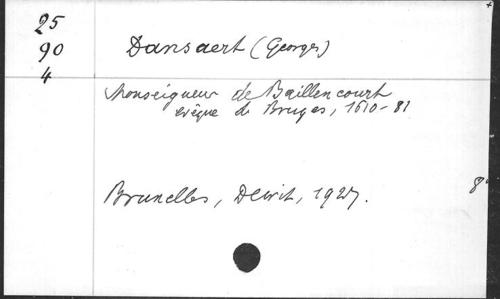 25
90
4
Dansaert (Georges)
Monseigneur de Baillencourt
évêque de Bruges, 1610-81
Bruxelles, Dewit, 1927.
8°